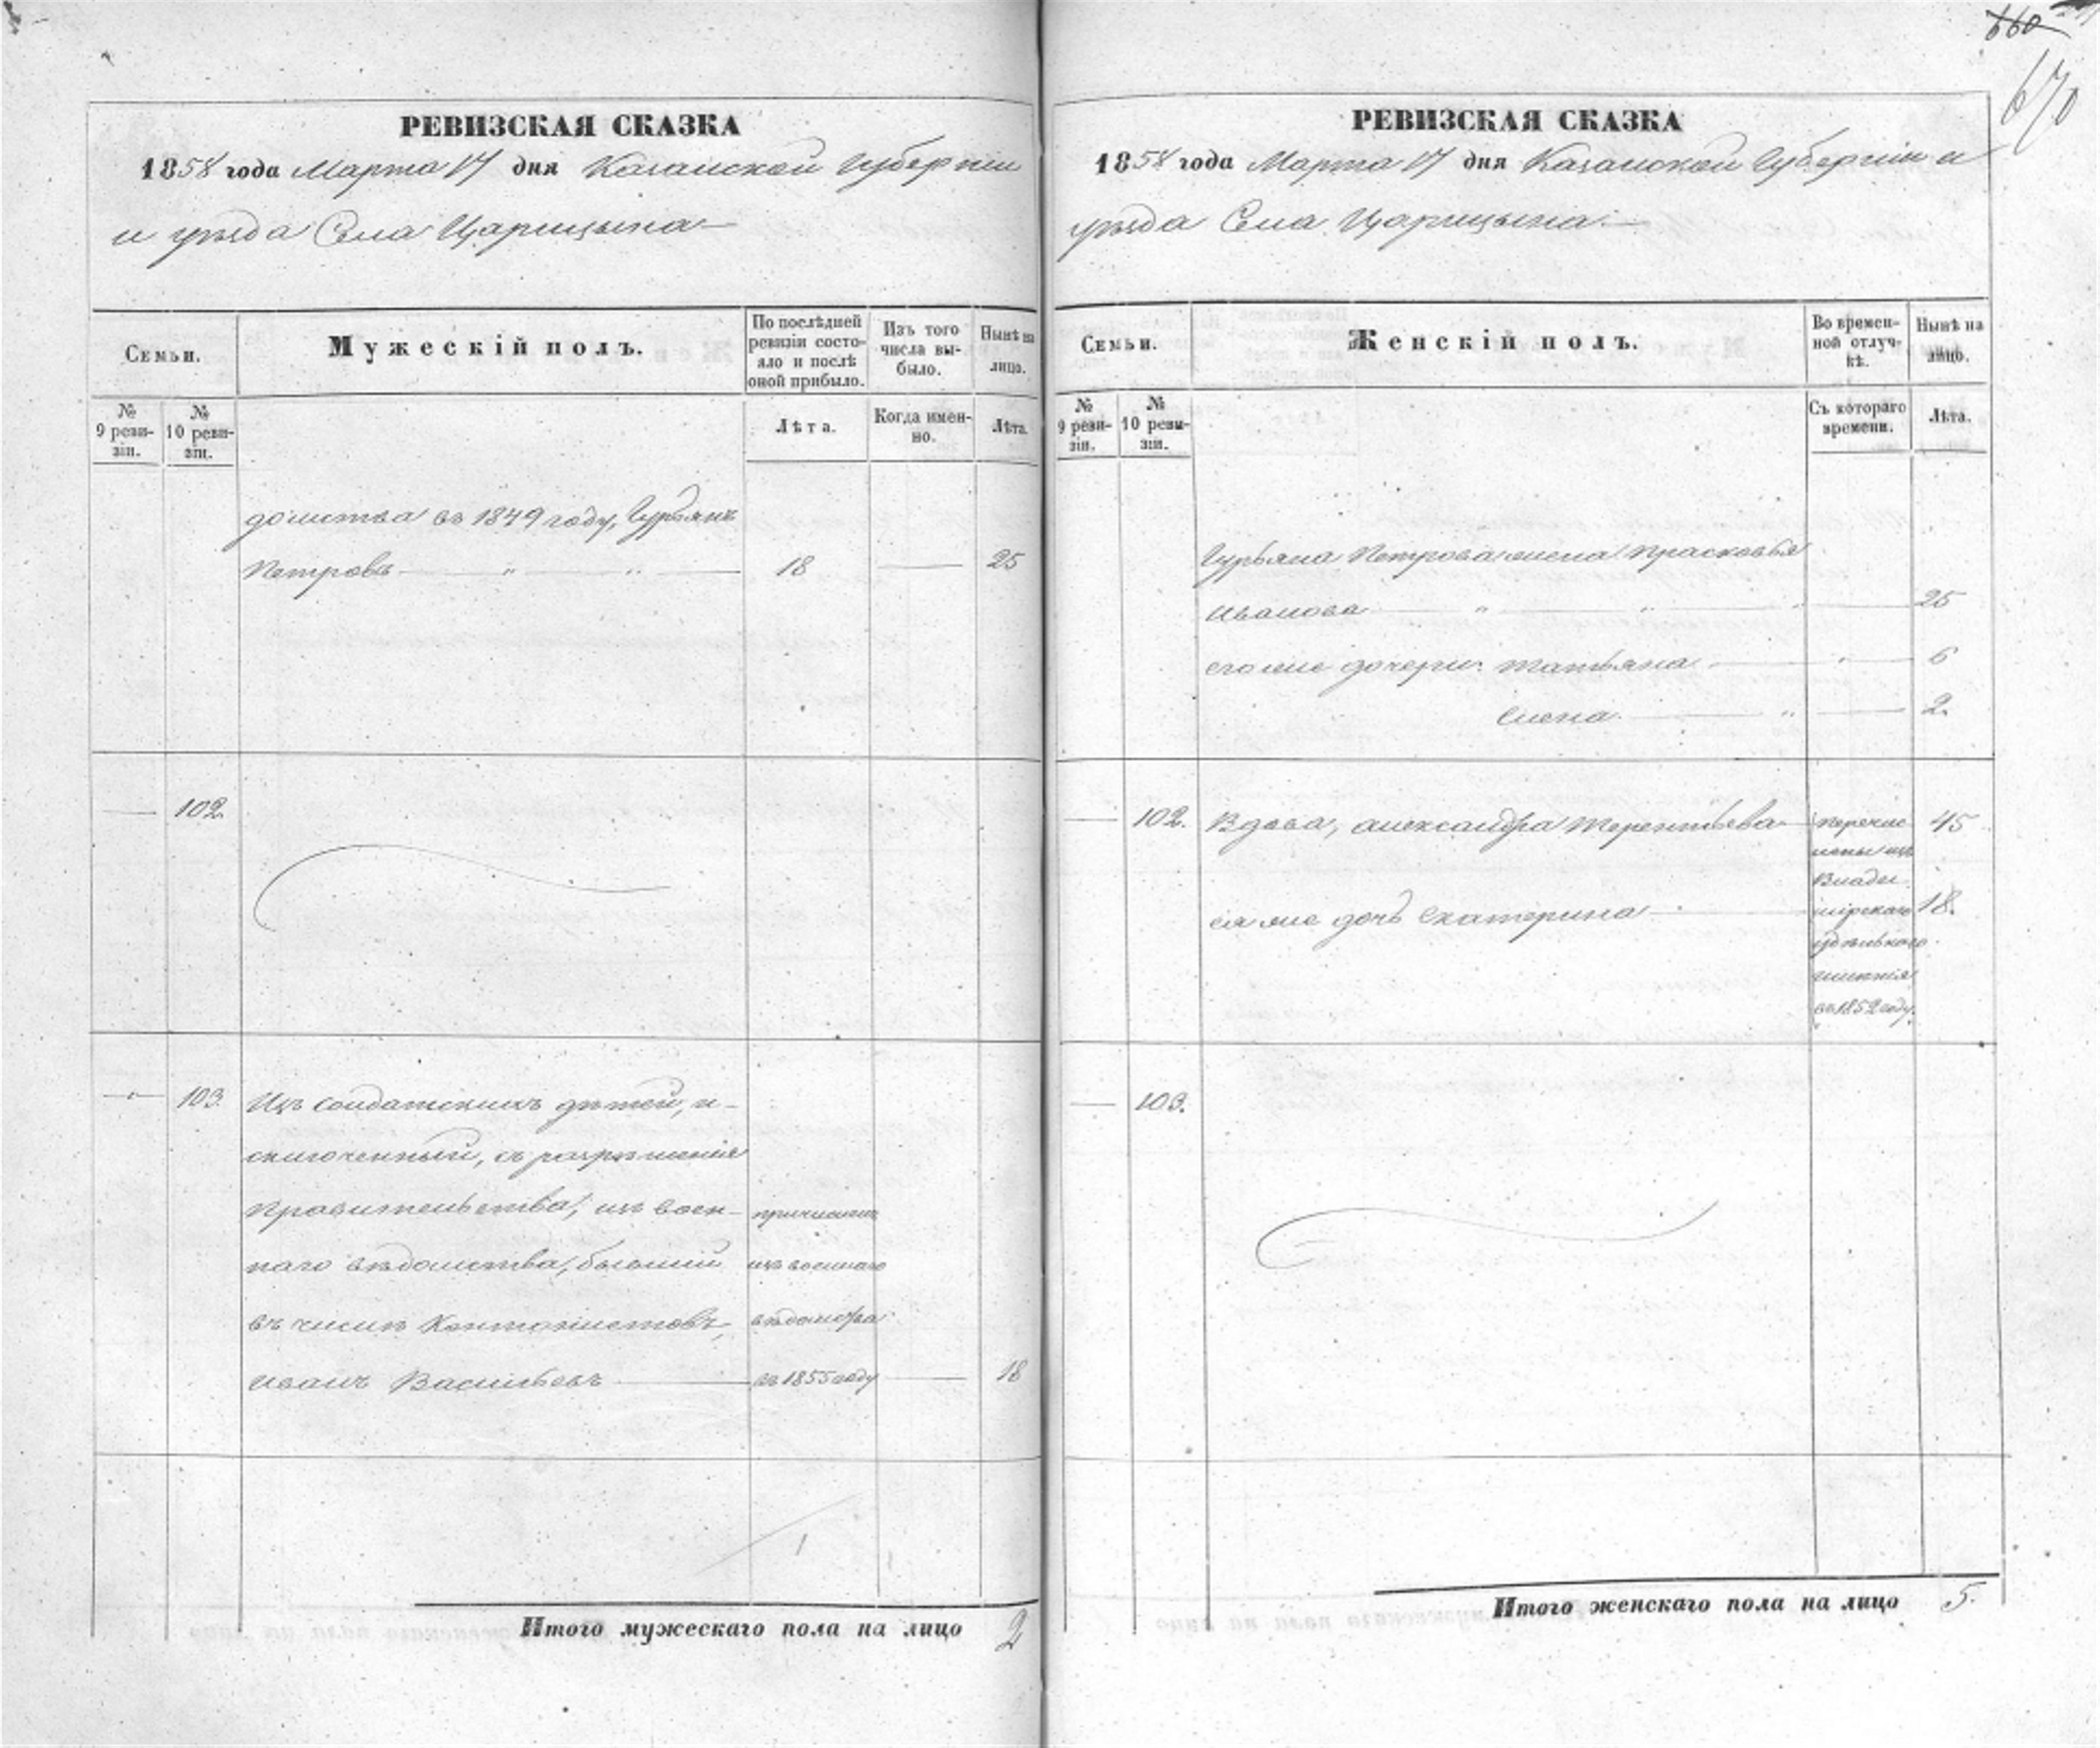 660
670
РЕВИЗСКАЯ СКАЗКА
1858 года Марта 17 дня Казанской Губерніи
и уѣзда Села Царицына
Семьи.
Мужескій полъ.
По послѣдней ревизіи состояло и послѣ оной прибыло.
Изъ того числа выбыло.
Нынѣ на лицо.
№ 9 ревизіи.
№ 10 ревизіи.
Лѣта.
Когда именно.
Лѣта.
домства въ 1849 году, Гурьянъ
Петровъ — " — " — 18 — 25
— 102.
— 103. Изъ солдатскихъ дѣтей, и-
сключенный, съ разрѣшенія
Правительства, изъ воен-
наго вѣдомства, бывшій
въ числѣ Кантонистовъ,
Иванъ Васильевъ — 18
причисленъ
изъ военнаго
вѣдомства
въ 1855 году
1
Итого мужескаго пола на лицо 2
РЕВИЗСКАЯ СКАЗКА
1858 года Марта 17 дня Казанской Губерніи и
уѣзда Села Царицына.
Семьи.
Женскій полъ.
Во временной отлучкѣ.
Нынѣ на лицо.
№ 9 ревизіи.
№ 10 ревизіи.
Съ котораго времени.
Лѣта.
Гурьяна Петрова жена Прасковья
Иванова — " — " — " — 25
его же дочери: Татьяна — " — 6
Елена — " — 2.
— 102. Вдова, Александра Терентьева 45
ея же дочь Екатерина — 18.
перечис
лены изъ
Влади
мірскаго
удѣльнаго
имѣнія
въ 1852 году.
— 103.
Итого женскаго пола на лицо 5.